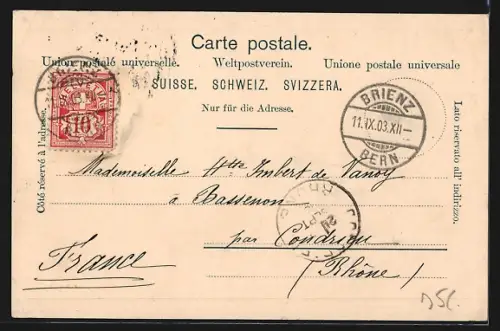 Carte postale.
Union postale universelle. Weltpostverein. Unione postale universale
SUISSE. SCHWEIZ. SVIZZERA.
Nur für die Adresse.
Côté réservé à l'adresse.
Lato riservato all'indirizzo.
HELVETIA
10
BRIENZ
11.IX.03.XII-
BERN
Mademoiselle Hte Imbert de
à Bassenon
par Condrieu
(Rhône)
France